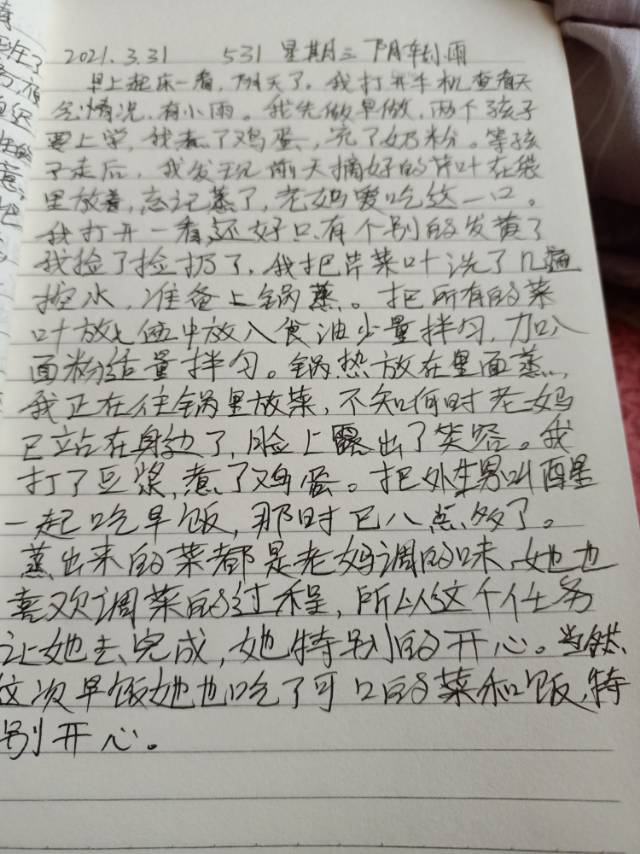 2021.3.31 531 星期三 阴转小雨
早上起床一看,阴天了。我打开手机查看天
气情况,有小雨。我先做早做,两个孩子
要上学,我煮了鸡蛋,冲了奶粉。等孩
子走后,我发现前天摘好的芹叶在袋
里放着,忘记蒸了,老妈爱吃这一口。
我打开一看,还好只有个别的发黄了
我捡了捡扔了,我把芹菜叶洗了几遍
控水,准备上锅蒸。把所有的菜
叶放盆中放入食油少量拌匀,加入
面粉适量拌匀。锅热放在里面蒸,
我正在往锅里放菜,不知何时老妈
已站在身边了,脸上露出了笑容。我
打了豆浆,煮了鸡蛋。把外生男叫醒
一起吃早饭,那时已八点多了。
蒸出来的菜都是老妈调的味,她也
喜欢调菜的过程,所以这个任务
让她去完成,她特别的开心。当然,
这次早饭她也吃了可口的菜和饭,特
别开心。